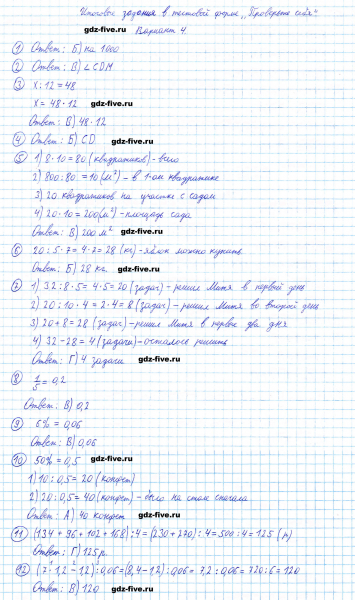 Итоговые задания в тестовой форме „Проверьте себя“.
gdz-five.ru Вариант 4
① Ответ: Б) на 1000
② Ответ: В) ∠ CDM
③ x : 12 = 48
x = 48 · 12 gdz-five.ru
Ответ: В) 48 · 12
④ Ответ: Б) CD. gdz-five.ru
⑤ 1) 8 · 10 = 80 (квадратиков) - всего
2) 800 : 80 = 10 (м²) - в 1-ом квадратике
3) 20 квадратиков на участке с садом
4) 20 · 10 = 200 (м²) - площадь сада
Ответ: В) 200 м² gdz-five.ru
⑥ 20 : 5 · 7 = 4 · 7 = 28 (кг) - яблок можно купить
Ответ: Б) 28 кг. gdz-five.ru
⑦ 1) 32 : 8 · 5 = 4 · 5 = 20 (задач) - решил Митя в первый день
2) 20 : 10 · 4 = 2 · 4 = 8 (задач) - решил Митя во второй день
3) 20 + 8 = 28 (задач) - решил Митя в первые два дня
4) 32 - 28 = 4 (задачи) - осталось решить
Ответ: Г) 4 задачи gdz-five.ru
⑧ 1/5 = 0,2
Ответ: В) 0,2 gdz-five.ru
⑨ 6% = 0,06
Ответ: В) 0,06 gdz-five.ru
⑩ 50% = 0,5
1) 10 : 0,5 = 20 (конфет)
2) 20 : 0,5 = 40 (конфет) - было на столе сначала
Ответ: А) 40 конфет gdz-five.ru
⑪ (134 + 96 + 102 + 168) : 4 = (230 + 270) : 4 = 500 : 4 = 125 (р)
Ответ: Г) 125 р. gdz-five.ru
⑫ (7 · 1,2 - 1,2) : 0,06 = (8,4 - 1,2) : 0,06 = 7,2 : 0,06 = 720 : 6 = 120
Ответ: В) 120 gdz-five.ru